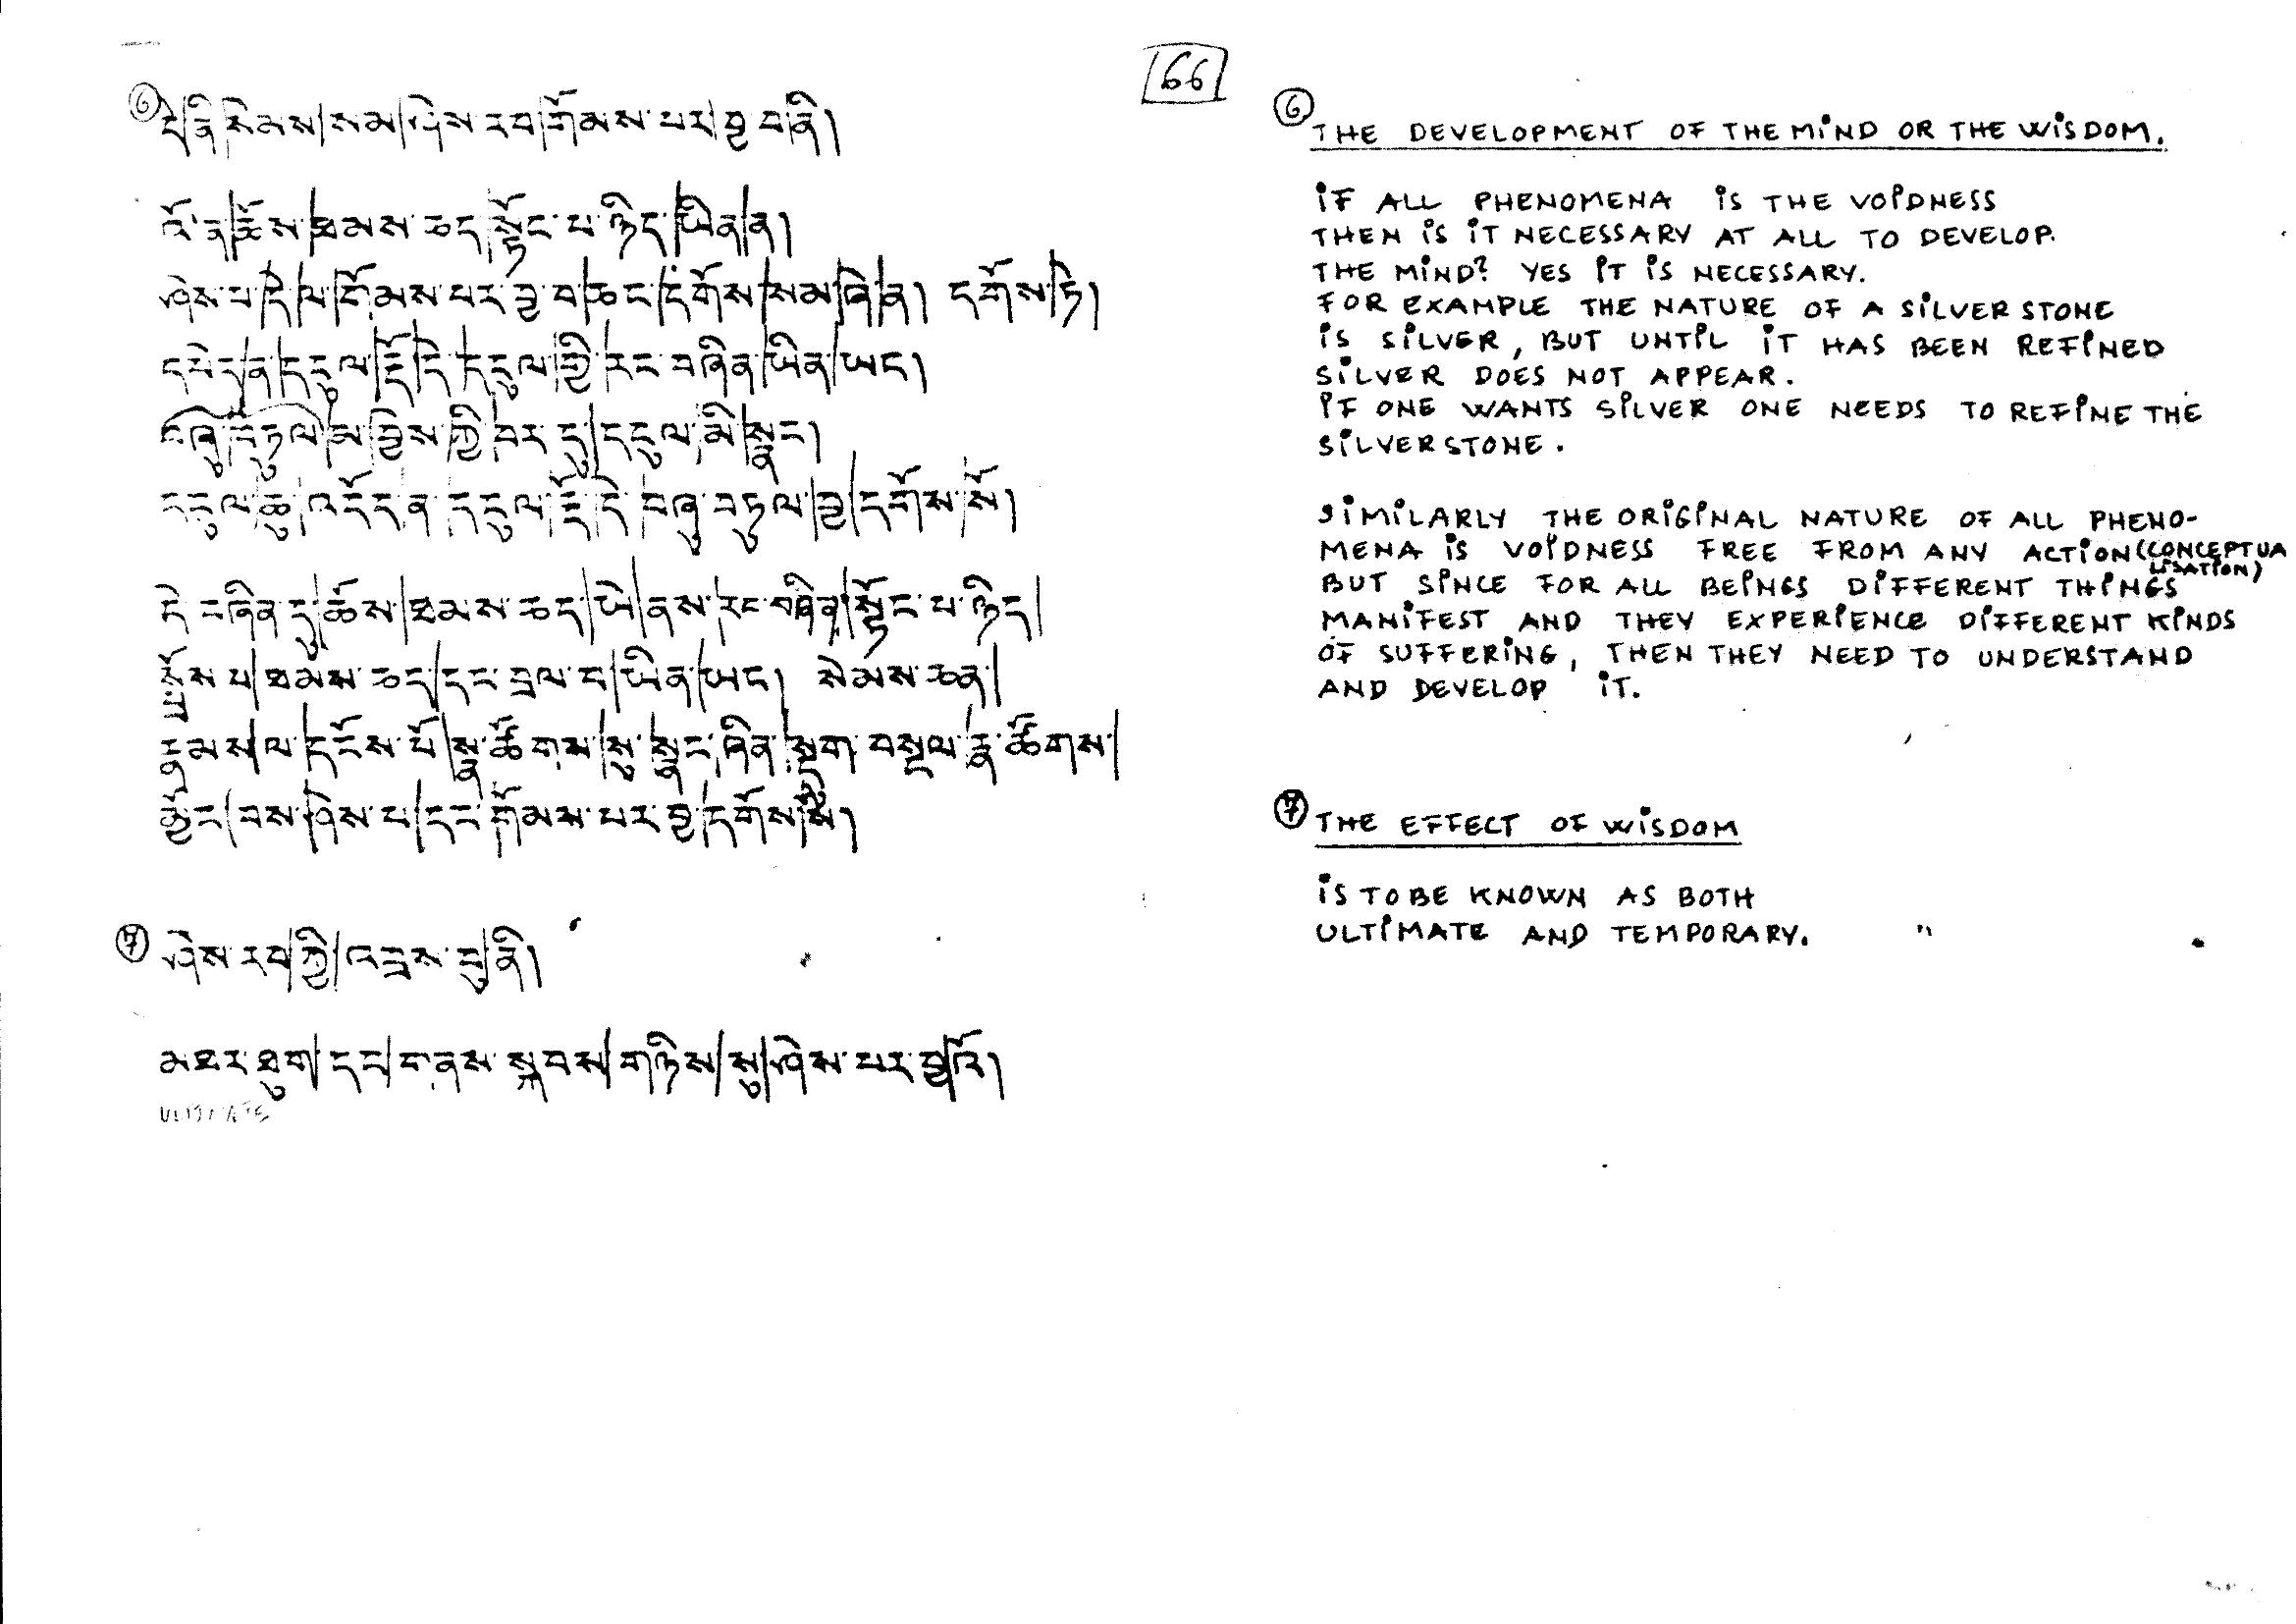 66
⑥ དེ་ནི་སེམས་སམ་ཤེས་རབ་གོམས་པར་བྱ་བ་ནི།
འོ་ན་ཆོས་ཐམས་ཅད་སྟོང་པ་ཉིད་ཡིན་ན།
ཤེས་པ་དེ་ལ་གོམས་པར་བྱ་བ་ཆང་དགོས་སམ་ཞེ་ན། དགོས་ཏེ།
དཔེར་ན་དངུལ་རྡོ་དེ་དངུལ་གྱི་རང་བཞིན་ཡིན་ཡང་།
བཞུ་བཏུལ་མ་བྱས་ཀྱི་བར་དུ་དངུལ་མི་སྣང་།
དངུལ་ཆུ་འདོད་ན་དངུལ་རྡོ་དེ་བཞུ་བཏུལ་བྱ་དགོས་སོ།
དེ་བཞིན་དུ་ཆོས་ཐམས་ཅད་ཡེ་ནས་རང་བཞིན་སྟོང་པ་ཉིད།
སྤྲོས་པ་ཐམས་ཅད་དང་བྲལ་བ་ཡིན་ཡང་། སེམས་ཅན།
རྣམས་ལ་དངོས་པོ་སྣ་ཚོགས་སུ་སྣང་ཞིན་སྡུག་བསྔལ་སྣ་ཚོགས།
མྱོང་བས་ཤེས་པ་དང་གོམས་པར་བྱ་དགོས་སོ།
⑦ ཤེས་རབ་ཀྱི་འབྲས་བུ་ནི།
མཐར་ཐུག་དང་གནས་སྐབས་གཉིས་སུ་ཤེས་པར་བྱའོ།
ULTIMATE
⑥ THE DEVELOPMENT OF THE MIND OR THE WISDOM.
IF ALL PHENOMENA IS THE VOIDNESS
THEN IS IT NECESSARY AT ALL TO DEVELOP.
THE MIND? YES IT IS NECESSARY.
FOR EXAMPLE THE NATURE OF A SILVER STONE
IS SILVER, BUT UNTIL IT HAS BEEN REFINED
SILVER DOES NOT APPEAR.
IF ONE WANTS SILVER ONE NEEDS TO REFINE THE
SILVERSTONE.
SIMILARLY THE ORIGINAL NATURE OF ALL PHENO-
MENA IS VOIDNESS FREE FROM ANY ACTION (CONCEPTUA
LISATION)
BUT SINCE FOR ALL BEINGS DIFFERENT THINGS
MANIFEST AND THEY EXPERIENCE DIFFERENT KINDS
OF SUFFERING, THEN THEY NEED TO UNDERSTAND
AND DEVELOP IT.
⑦ THE EFFECT OF WISDOM
IS TO BE KNOWN AS BOTH
ULTIMATE AND TEMPORARY.